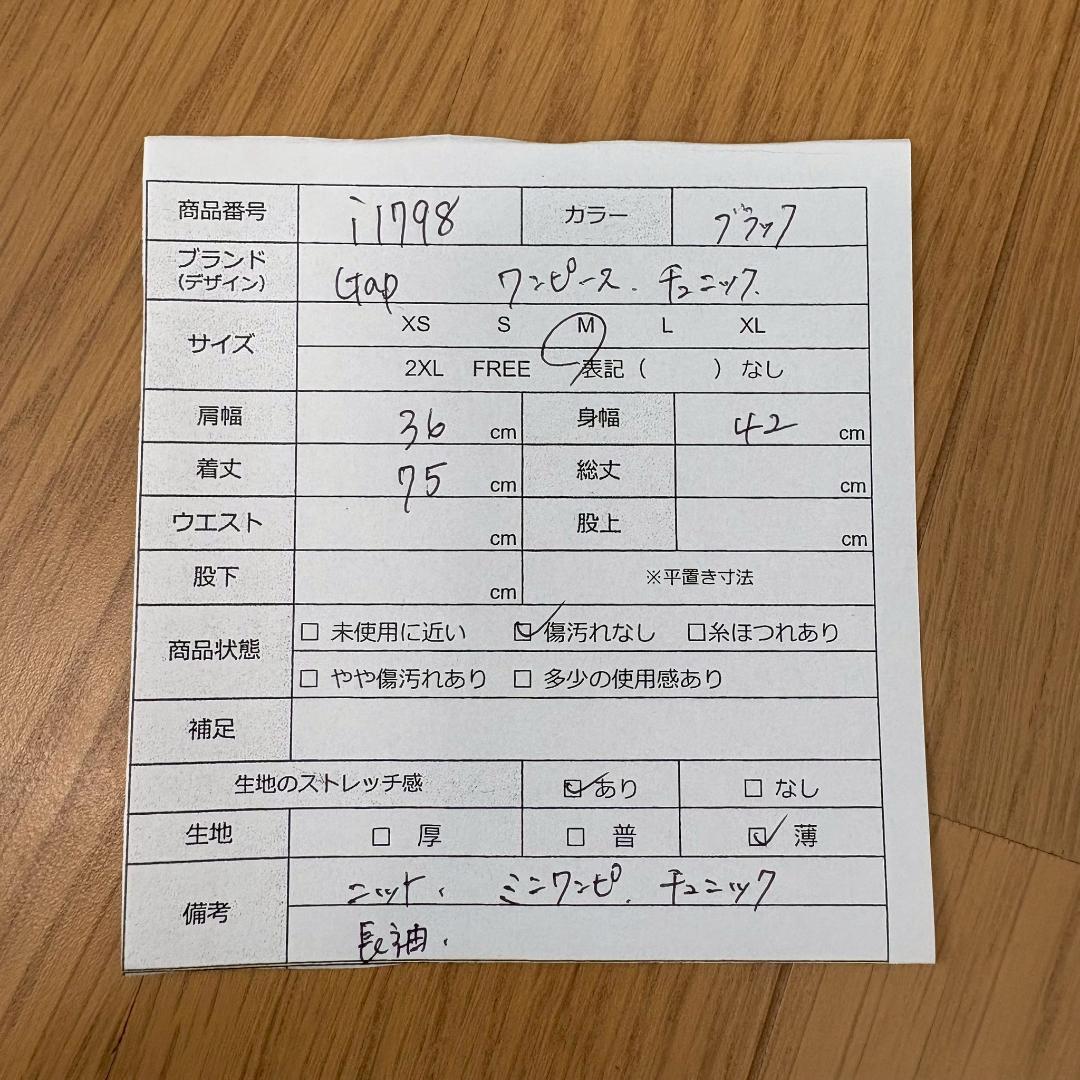 商品番号 i1798 カラー ブラック
ブランド
(デザイン) Gap ワンピース. チュニック.
サイズ XS S M L XL
2XL FREE 表記 ( ) なし
肩幅 36 cm 身幅 42 cm
着丈 75 cm 総丈 cm
ウエスト cm 股上 cm
股下 cm ※平置き寸法
商品状態 □ 未使用に近い ☑ 傷汚れなし □糸ほつれあり
□ やや傷汚れあり □ 多少の使用感あり
補足
生地のストレッチ感 ☑ あり □ なし
生地 □ 厚 □ 普 ☑ 薄
備考 ニット、 ミニワンピ. チュニック
長袖.